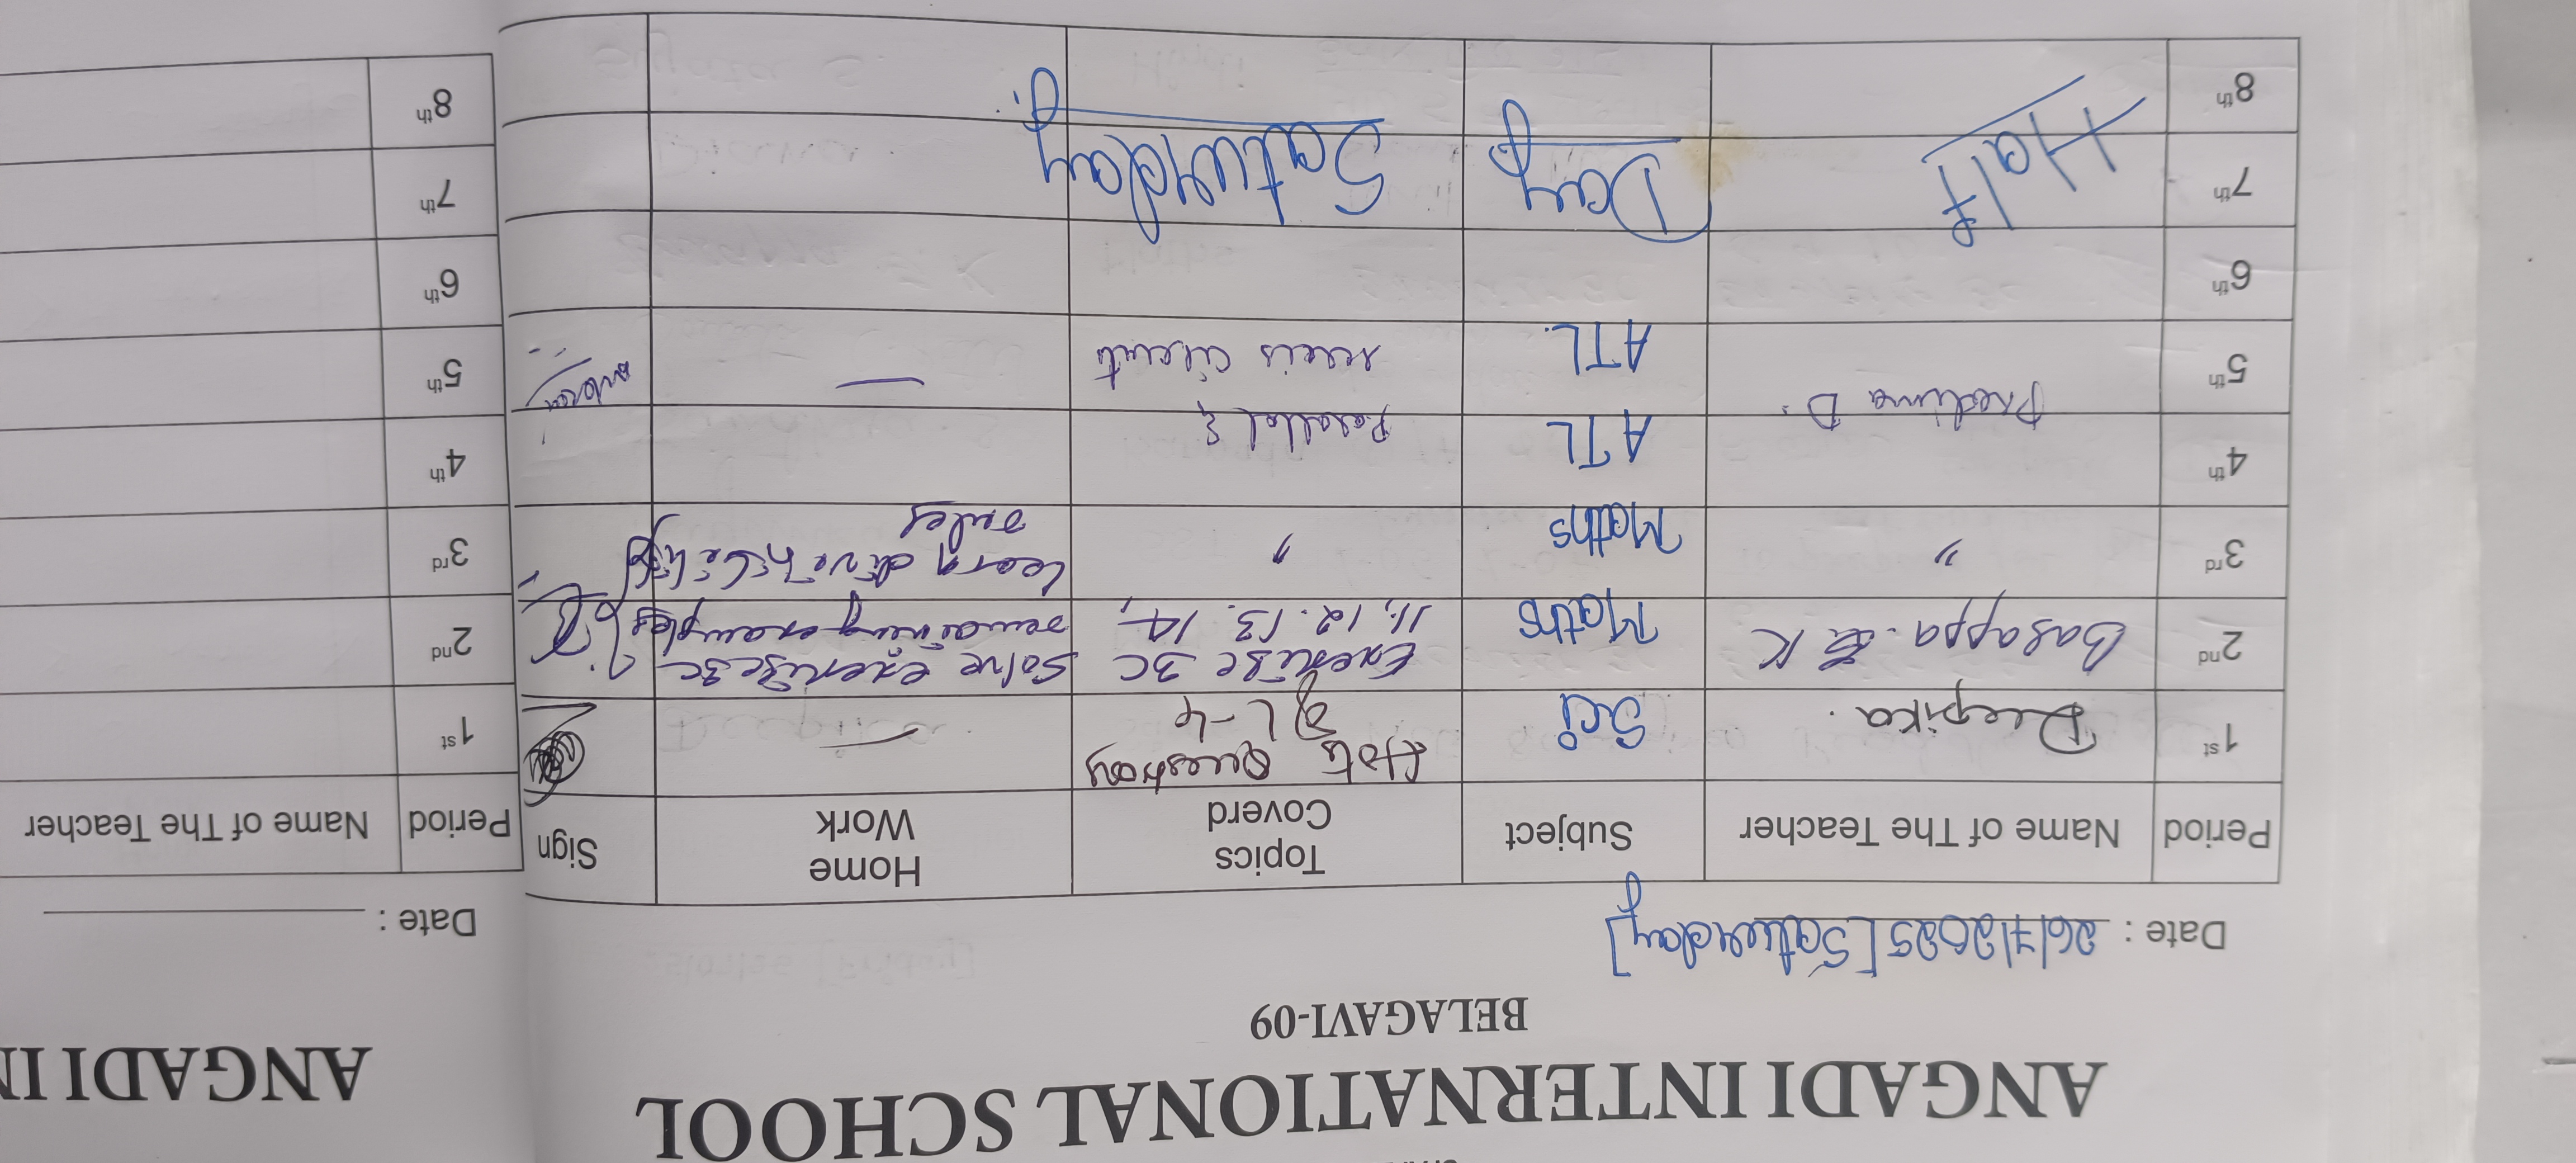 ANGADI INTERNATIONAL SCHOOL
BELAGAVI-09
Date : 26/7/2025 [Saturday]
Period Name of The Teacher Subject Topics Coverd Home Work Sign
1st Deepika. Sci Questions L-4 —
2nd Basappa. K Maths Exercise 3C 11, 12. 13. 14, Solve exercise 3C remaining examples
3rd " Maths " Learn divisibility rules
4th ATL Parallel &
5th Pratima D. ATL. series circuit —
6th
7th Half Day Saturday.
8th
ANGADI IN
Date :
Period Name of The Teacher
1st
2nd
3rd
4th
5th
6th
7th
8th